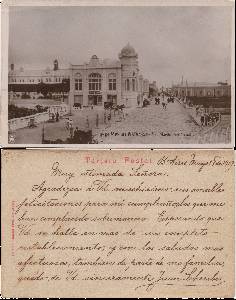 Tarjeta Postal
Bs Aires Mayo
Muy estimada Señora:
Agradezco á Vd. muchísimo sus amables
felicitaciones para mi cumpleaños que me
han complacido sobremanera. Esperando que
Vd. se halla en mas de un completo
restablecimiento, y con los saludos mas
afectuosos, tambien de parte de mi familia,
quedo de Vd. sinceramente